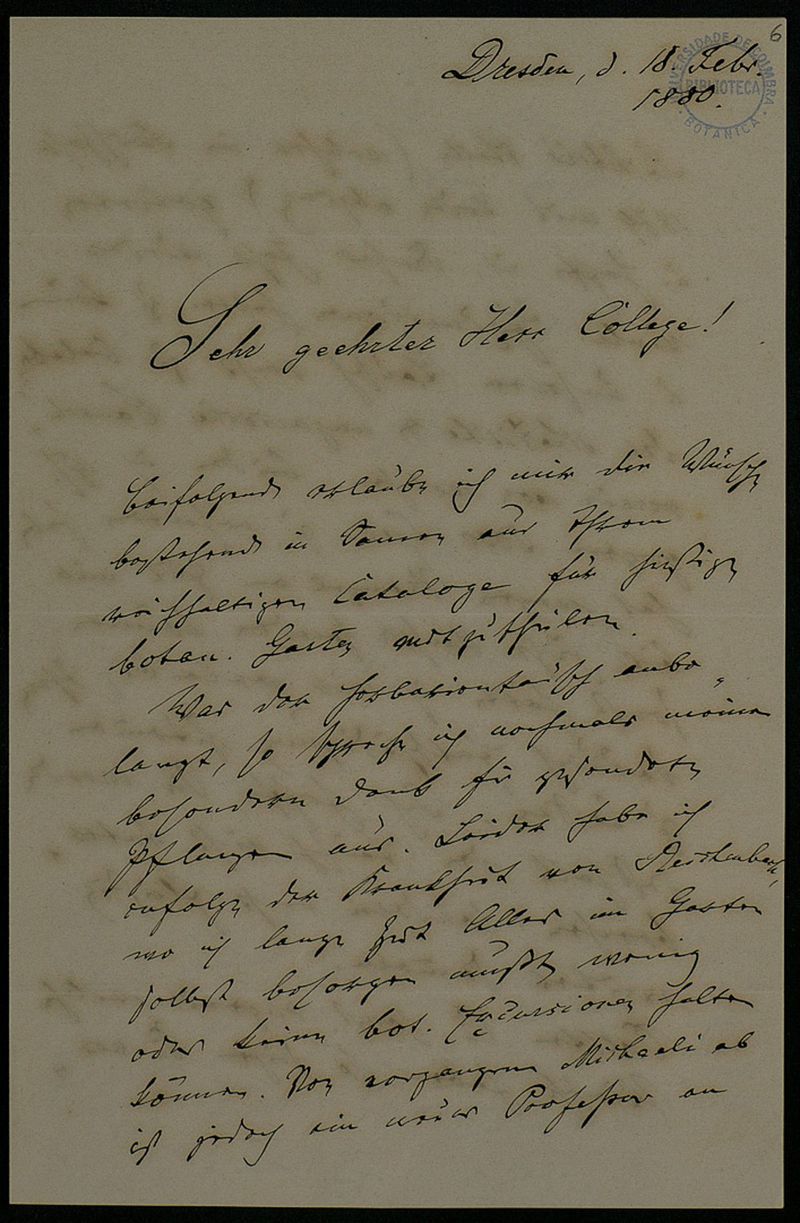 6
UNIVERSIDADE DE COIMBRA
BIBLIOTECA
BOTANICA
Dresden, d. 18. Febr.
1880.
Sehr geehrter Herr College!
beifolgend erlaube ich mir die Wünsche
bestehend in Samen aus Ihrem
reichhaltigen Cataloge für hiesigen
botan. Garten mitzutheilen.
Was den Herbarientausch anbe„
langt, so spreche ich nochmals meinen
besondern Dank für gesendete
Pflanzen aus. Leider habe ich
zufolge der Krankheit von Reichenbach,
wo ich lange Zeit Alles im Garten
selbst besorgen mußte wenig
oder keine bot. Excursionen halten
können. Von vergangene Michaeli ab
ist jedoch ein neuer Professor an